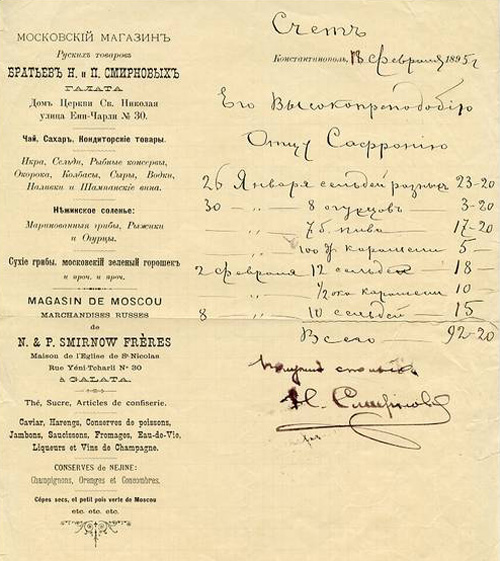 МОСКОВСКІЙ МАГАЗИНЪ
Рускихъ товаровъ
БРАТЬЕВЪ Н. и П. СМИРНОВЫХЪ
ГАЛАТА
Домъ Церкви Св. Николая
улица Ени-Чарли № 30.
Чай, Сахаръ. Кондиторскіе товары.
Икра, Сельди, Рыбные консервы,
Окорока, Колбасы, Сыры, Водки,
Наливки и Шампанскіе вина.
Нѣжинское соленье:
Маринованныя грибы, Рыжики
и Огурцы.
Сухіе грибы. московскій зеленый горошекъ
и проч. и проч.
MAGASIN DE MOSCOU
MARCHANDISES RUSSES
de
N. & P. SMIRNOW FRÈRES
Maison de l'Eglise de St Nicolas
Rue Yéni-Tcharli No 30
à GALATA.
Thé, Sucre, Articles de confiserie.
Caviar, Harengs, Conserves de poissons,
Jambons, Saucissons, Fromages, Eau-de-Vie,
Liqueurs et Vins de Champagne.
CONSERVES de NEJINE:
Champignons, Oronges et Concombres.
Cèpes secs, et petit pois verts de Moscou
etc. etc. etc.
Счетъ
Константинополь, 18 Февраля 1895 г
Его Высокопреподобію
Отцу Сафронію
26 Января сельдей разныхъ 23-20
30 — „ — 8 огурцовъ — 3-20
— „ — 7 б. пива — 17-20
— „ — 100 д. карамели 5 -
2 февраля 12 сельдей — 18 —
— „ — 1/2 ока карамели 10 —
8 „ — 10 сельдей — 15
Всего 92-20
Получилъ сполна
Н. Смирновъ